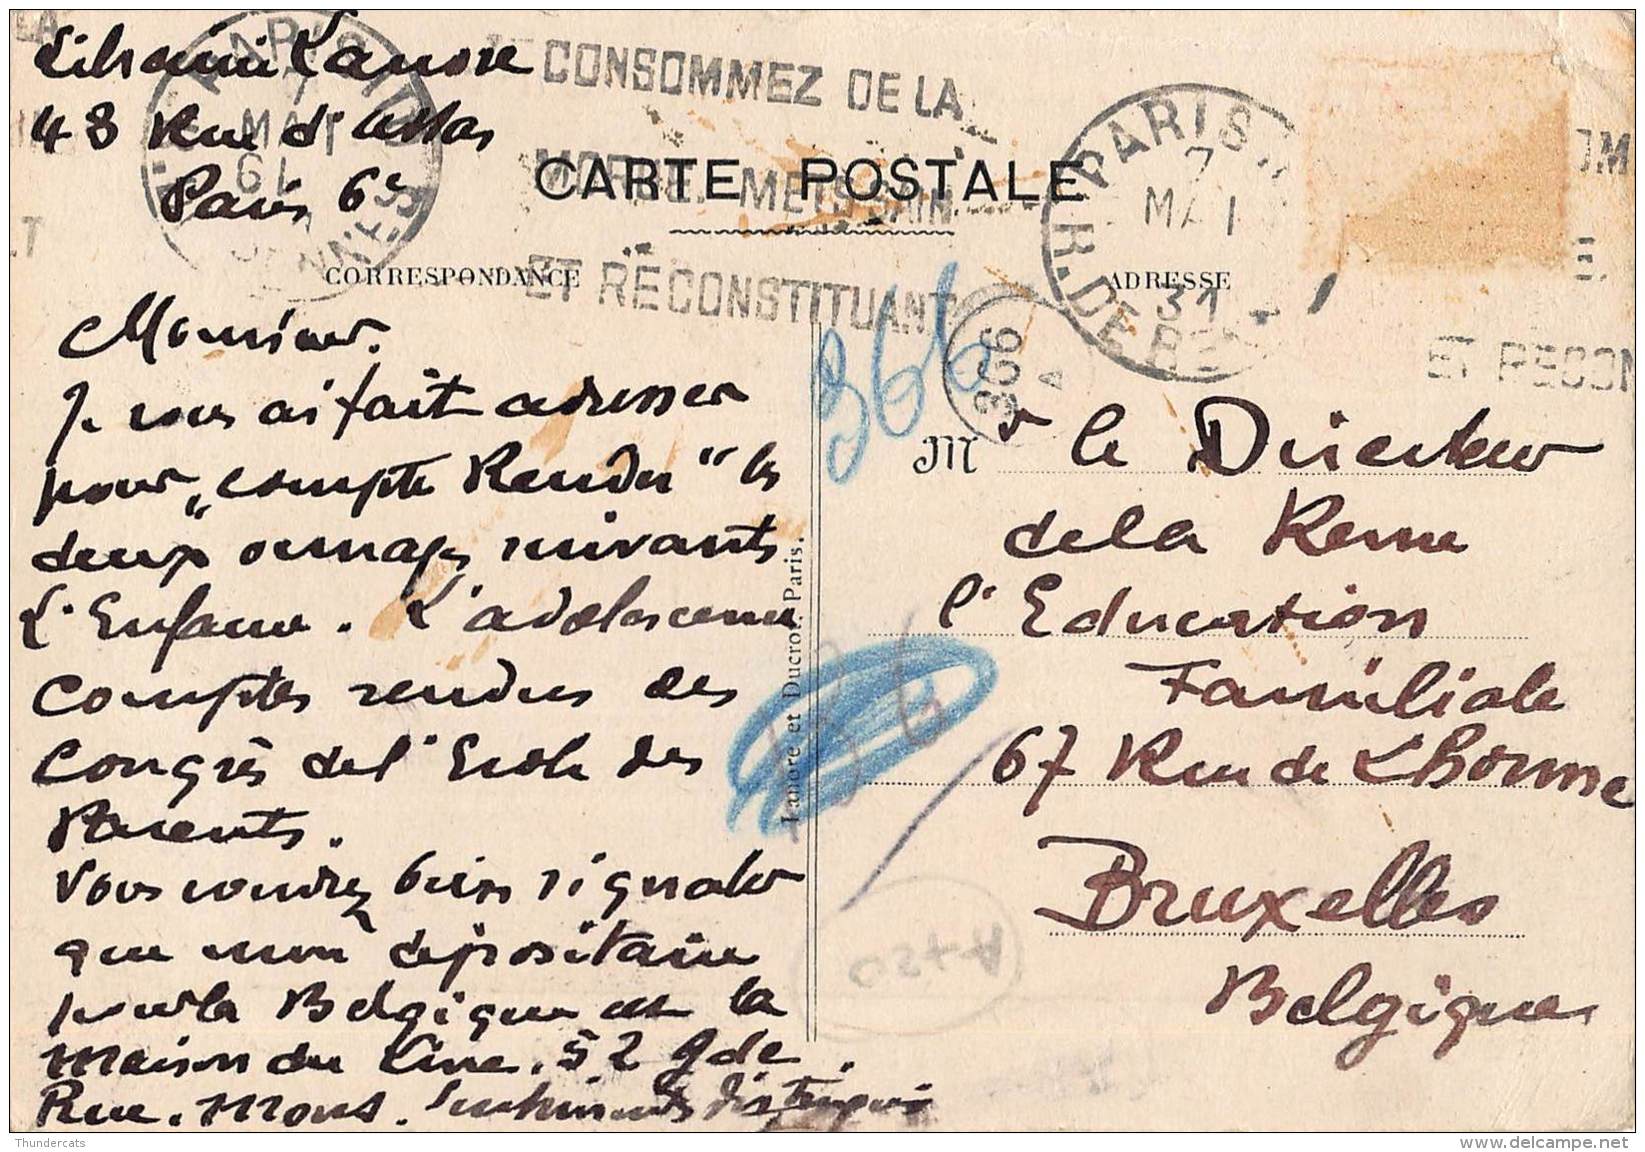 Librairie Lanore
48 Rue d'Assas
Paris 6e
CONSOMMEZ DE LA
METS SAIN
ET RECONSTITUANT
CARTE POSTALE
CORRESPONDANCE
ADRESSE
PARIS
7
MAI
31
366
366
A
ET RECON
Monsieur.
Je vous ai fait adresser
pour "compte Rendu" les
deux ouvrages suivants
L'Enfance. L'adolescence
Comptes rendus des
Congrès de l'Ecole des
Parents.
Vous voudrez bien signaler
que mon dépositaire
pour la Belgique est la
Maison du Livre. 52 Gde
Rue. Mons. Sentiments distingués
Lanore et Ducrot. Paris.
Mr le Directeur
de la Revue
l'Education
Familiale
67 Rue de Lhomme
Bruxelles
Belgique
A+50
Thundercats
delcampe.net